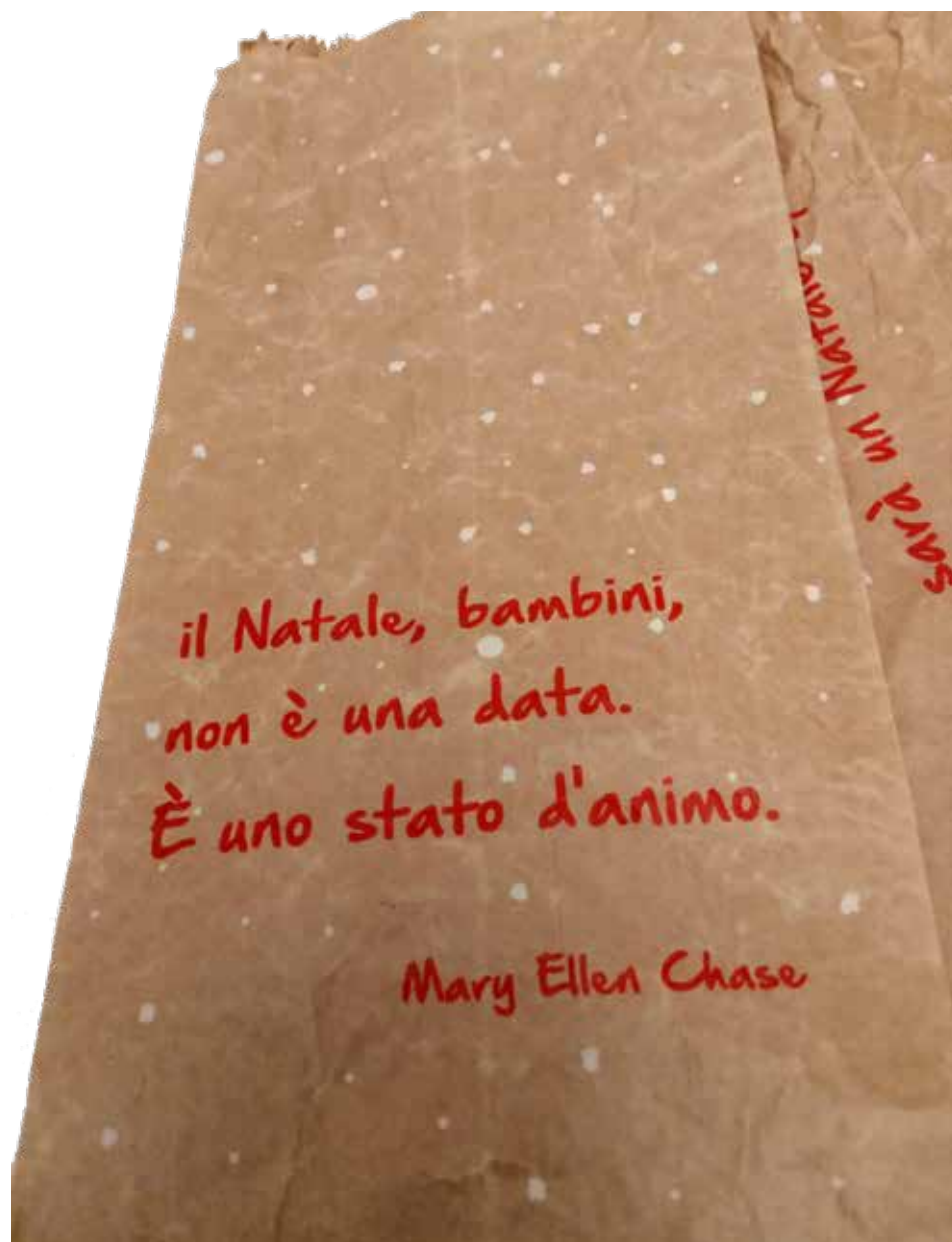 il Natale, bambini,
non è una data.
È uno stato d'animo.
Mary Ellen Chase
sarà un Natale